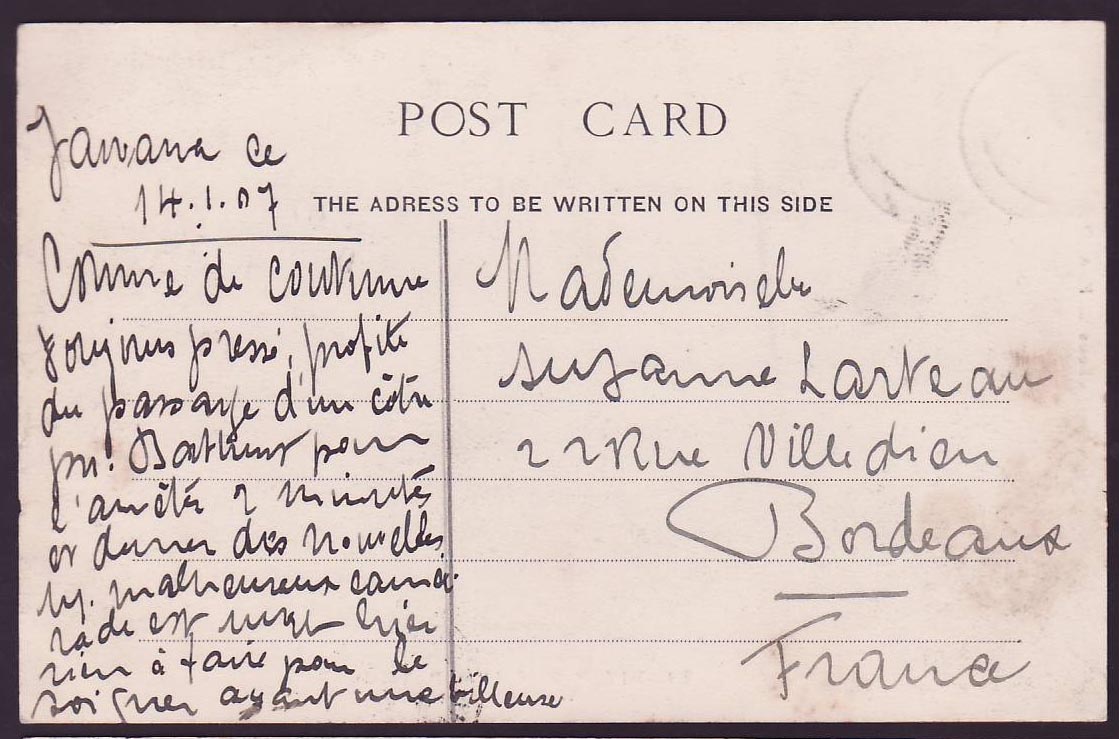 POST CARD
THE ADRESS TO BE WRITTEN ON THIS SIDE
ce
14.1.07
Comme de coutume
toujours pressé, profite
du passage d'un côtre
pr. pour
l'arrêter 2 minutes
et donner des nouvelles
malheureux cama-
rade est mort hier
rien à faire pour le
soigner ayant une billeuse
Mademoiselle
Suzanne Larteau
22 Rue Villedieu
Bordeaux
France